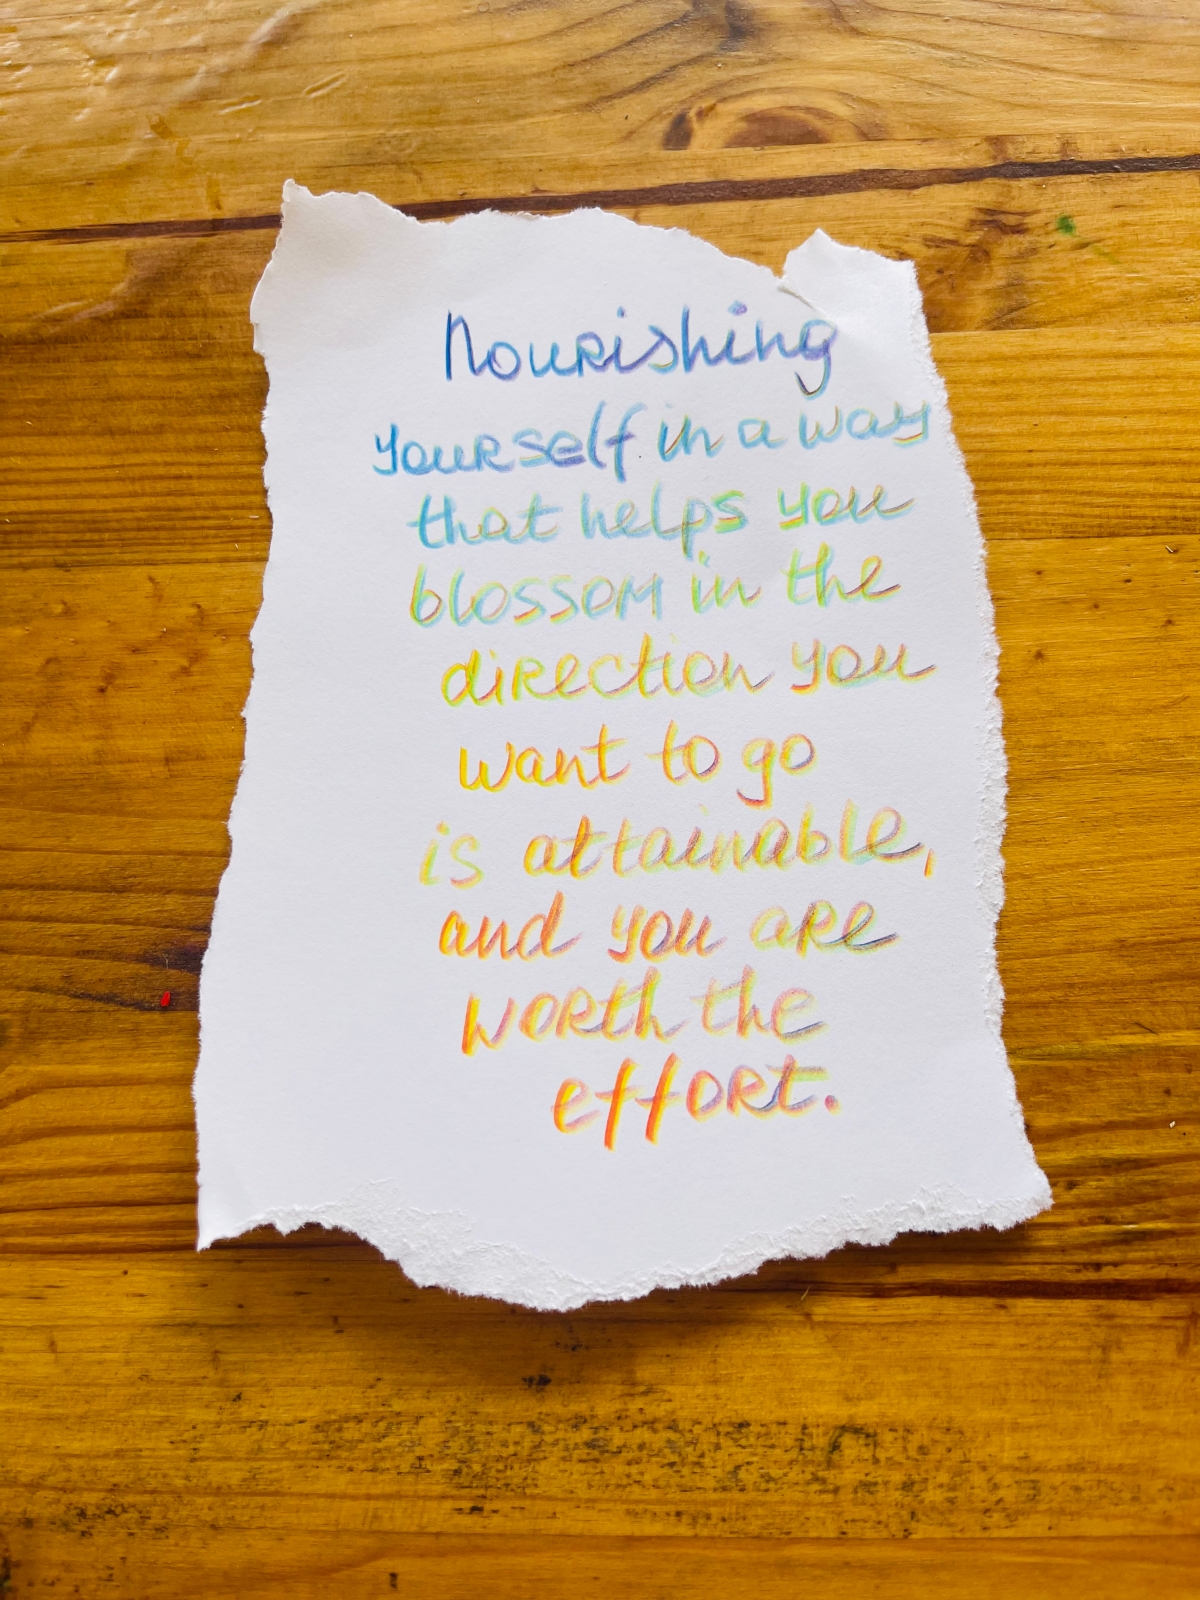 Nourishing
yourself in a way
that helps you
blossom in the
direction you
want to go
is attainable,
and you are
worth the
effort.